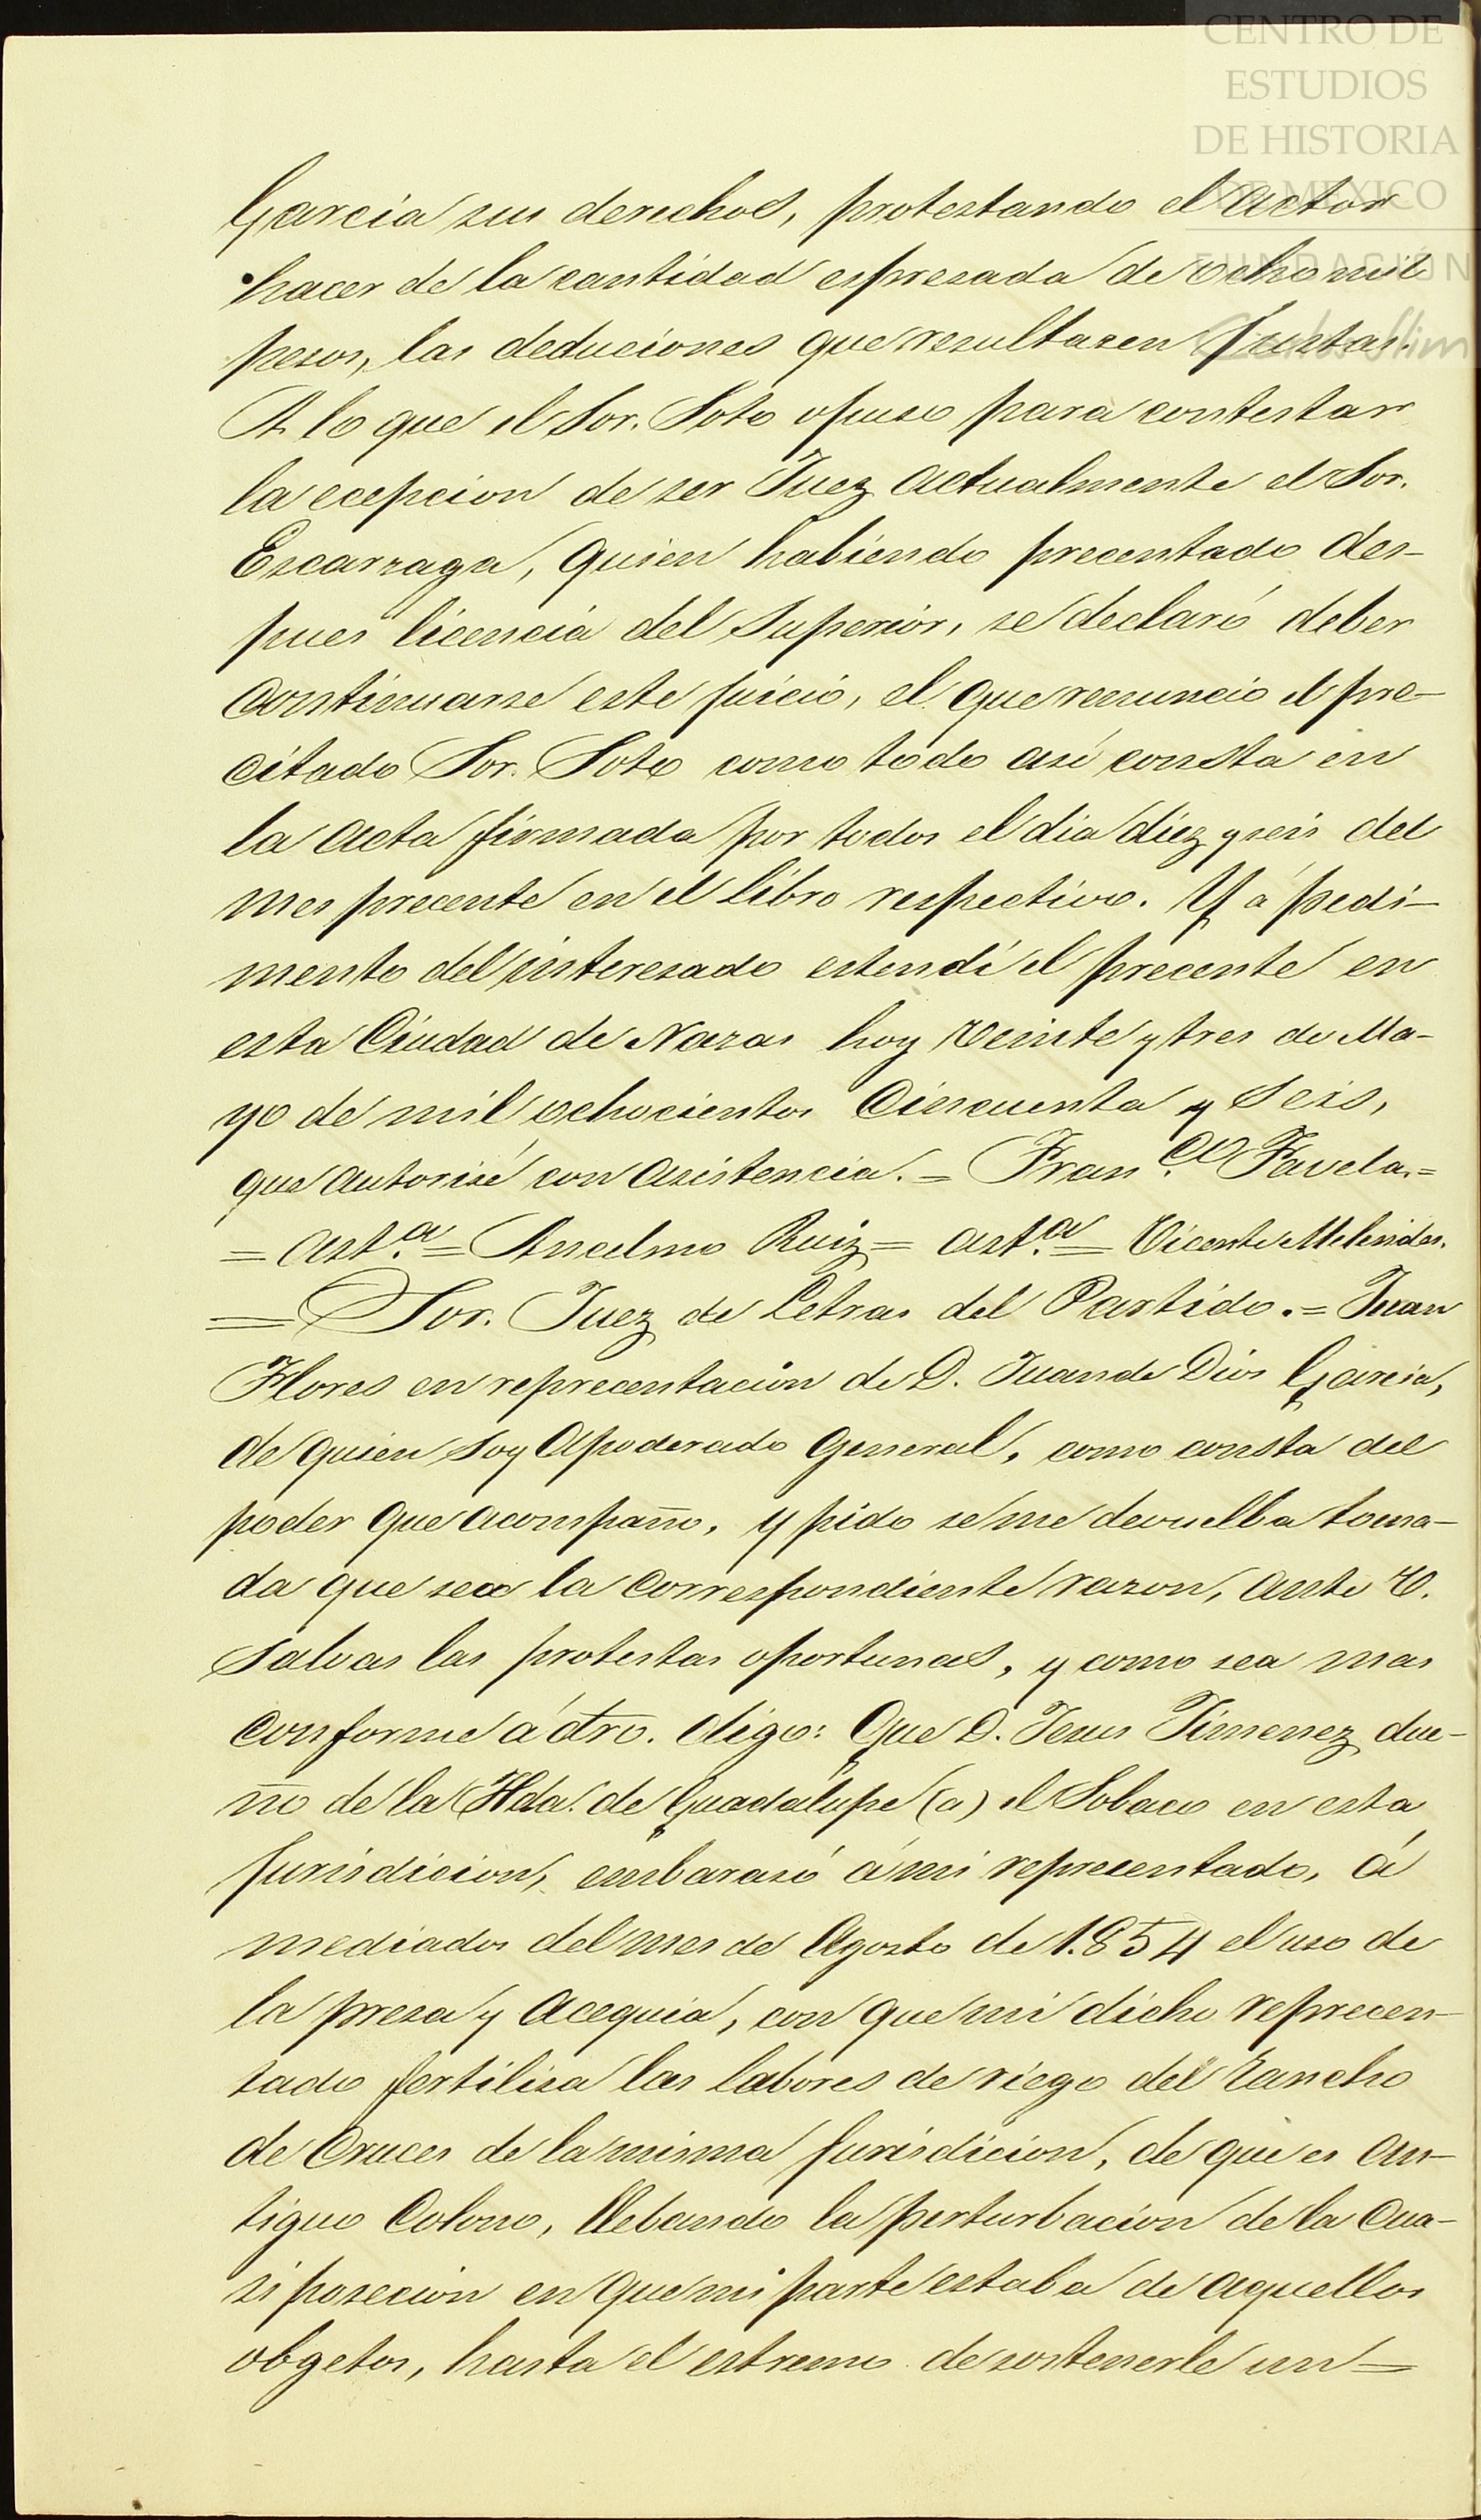 CENTRO DE
ESTUDIOS
DE HISTORIA
DE MEXICO
FUNDACIÓN
Carlos Slim
Garcia sus derechos, protestando el actor
hacer de la cantidad espresada de ocho mil
pesos, las deduciones que resultasen justas.
A lo que el Sor. Soto opuso para contestar
la ecepcion de ser Juez actualmente el Sor.
Escarzaga, quien habiendo precentado des-
pues licencia del Superior, se declaró deber
continuarse este juicio, el que renuncio el pre-
citado Sor. Soto como todo asi consta en
la acta firmada por todos el dia diez y seis del
mes precente en el libro respectivo. Y á pedi-
mento del interesado estendí el precente en
esta Ciudad de Nazas hoy veinte y tres de Ma-
yo de mil ochocientos cincuenta y seis,
que autorisé con asistencia. = Fran.co Favela. =
= ast.a = Ancelmo Ruiz = ast.a = Vicente Melendes.
= Sor. Juez de Letras del Partido. = Juan
Flores en reprecentacion de D. Juan de Dios Garcia,
de quien soy apoderado general, como consta del
poder que acompaño, y pido se me devuelba toma-
da que sea la correspondiente razon, ante V.
salvas las protestas oportunas, y como sea mas
conforme á dro. digo: Que D. Jesus Jimenez due-
ño de la Hda. de Guadalupe (a) el Sobaco en esta
jurisdicion, embarasó á mi reprecentado, á
mediados del mes de Agosto de 1.854 el uso de
la presa y acequia, con que mi dicho reprecen-
tado fertilisa las labores de riego del rancho
de Cruces de la misma jurisdicion, de que es an-
tiguo colono, llebando la perturbacion de la cua-
si posecion en que mi parte estaba de aquellos
obgetos, hasta el estremo de sostenerle un =